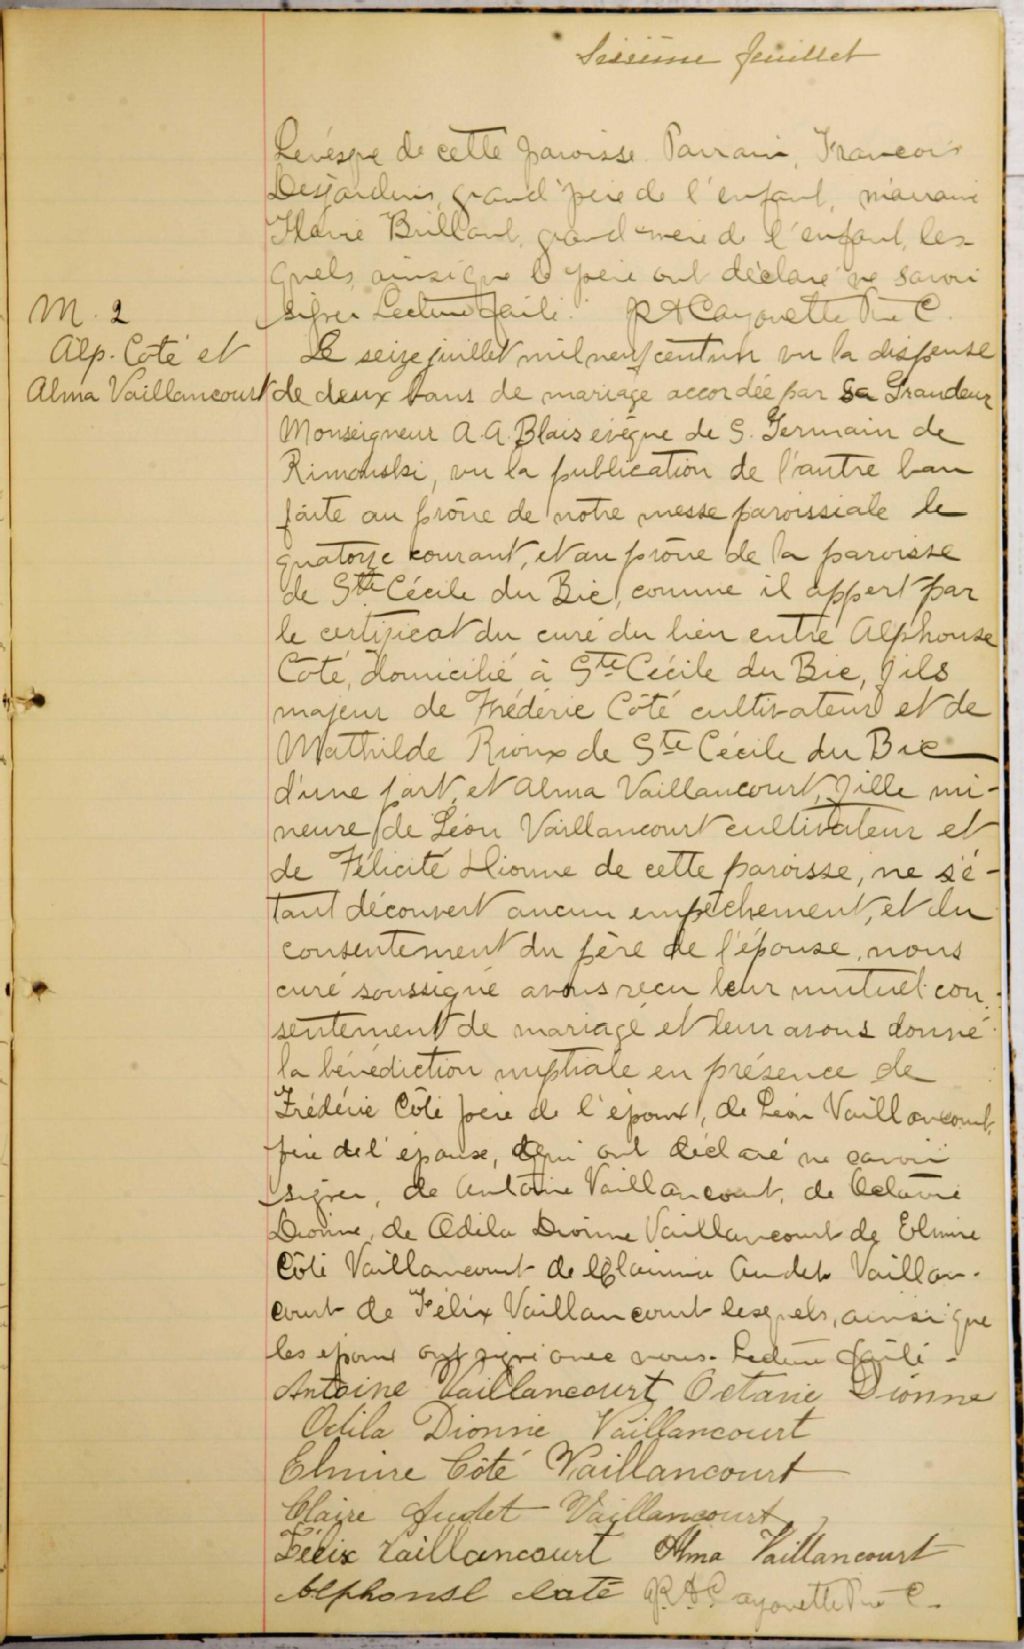 Sixième feuillet
Lévèsque de cette paroisse. Parrain, Francois
Desjardins, grand'père de l'enfant, marraine
Flavie Brillant, grand'mère de l'enfant, les-
quels, ainsi que le père ont déclaré ne savoir
signer Lecture faite. Ptre C.
M. 2
Alp. Coté et
Alma Vaillancourt
Le seize juillet mil neuf cent un vu la dispense
de deux bans de mariage accordée par Sa Grandeur
Monseigneur A. A. Blais evêque de S. Germain de
Rimouski, vu la publication de l'autre ban
faite au prône de notre messe paroissiale le
quatorze courant, et au prône de la paroisse
de Ste Cécile du Bic, comme il appert par
le certificat du curé du lieu entre Alphonse
Coté, domicilié à Ste Cécile du Bic, fils
majeur de Frédéric Côté cultivateur et de
Mathilde Rioux de Ste Cécile du Bic
d'une part, et Alma Vaillancourt, fille mi-
neure de Léon Vaillancourt cultivateur et
de Félicité Dionne de cette paroisse, ne s'é-
tant découvert aucun empêchement, et du
consentement du père de l'épouse, nous
curé soussigné avons reçu leur mutuel con-
sentement de mariage et leur avons donné
la bénédiction nuptiale en présence de
Frédéric Côté père de l'époux, de Léon Vaillancourt,
père de l'épouse, qui ont déclaré ne savoir
signer, de Antoine Vaillancourt, de Octavie
Dionne, de Odila Dionne Vaillancourt de Elmire
Côté Vaillancourt de Audet Vaillan-
court de Félix Vaillancourt lesquels, ainsi que
les époux ont signé avec nous. Lecture faite -
Antoine Vaillancourt Octavie Dionne
Odila Dionne Vaillancourt
Elmire Côté Vaillancourt
Claire Audet Vaillancourt
Félix Vaillancourt Alma Vaillancourt
Alphonse Coté Ptre C.